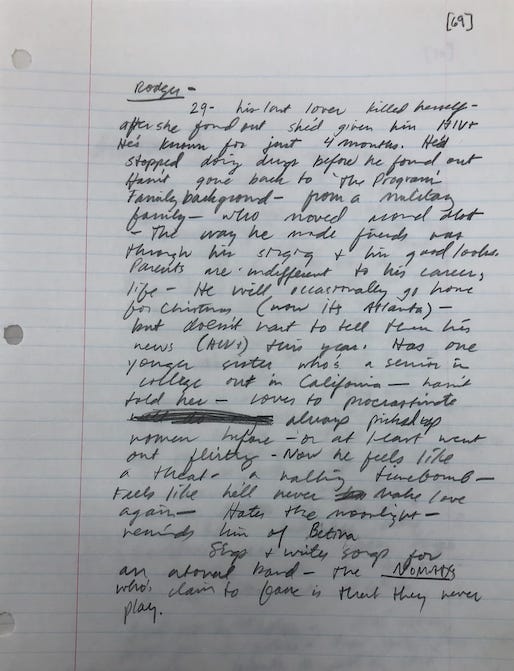 [69]
Rodger -
29 - his last lover killed herself -
after she found out she'd given him HIV+
He's known for just 4 months. He'd
stopped doing drugs before he found out
Hasn't gone back to "The Program"
Family background - from a military
family - who moved around alot
- The way he made friends was
through his singing + his good looks.
Parents are indifferent to his career,
life - He will occasionally go home
for Christmas (now its Atlanta) -
but doesn't want to tell them his
news (HIV+) this year. Has one
younger sister who's a senior in
college out in California - hasn't
told her - loves to procrastinate
always picked up
women before - or at least went
out flirting - Now he feels like
a threat - a walking timebomb -
feels like he'll never make love
again - Hates the moonlight -
reminds him of Betina
Sings + writes songs for
an band - the NOMADS
who's claim to fame is that they never
play.